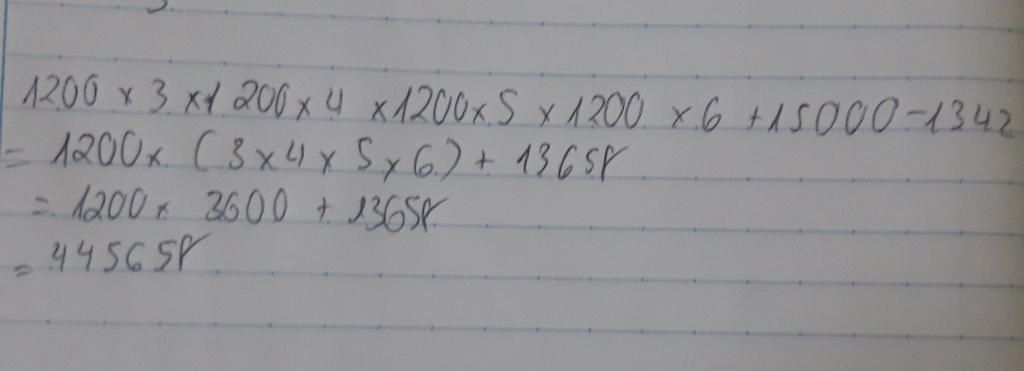 1200 x 3 x 1200 x 4 x 1200 x 5 x 1200 x 6 + 15000 - 1342
= 1200 x (3 x 4 x 5 x 6) + 13658
= 1200 x 3600 + 13658
= 445658